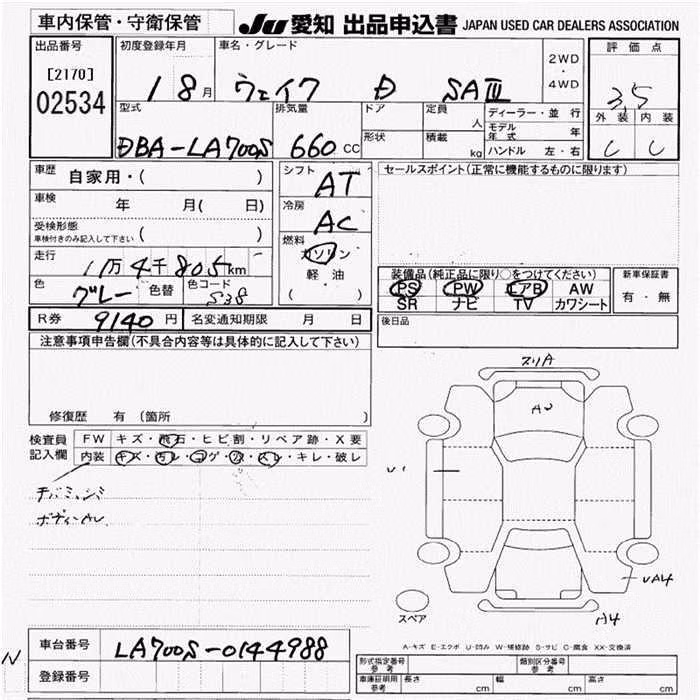 車内保管・守衛保管 JU 愛知 出品申込書 JAPAN USED CAR DEALERS ASSOCIATION
出品番号 初度登録年月 車名・グレード 2WD・4WD 評価点
[2170] 18月 ウェイク D SAⅢ 3.5
02534 型式 排気量 ドア 定員 人 ディーラー・並行 外装 内装
DBA-LA700S 660cc 形状 積載 kg モデル年式 年 C C
ハンドル 左・右
車歴 自家用・( ) シフト AT セールスポイント(正常に機能するものに限ります)
車検 年 月( 日) 冷房 AC
受検形態 ( )
車検付きのみ記入して下さい
走行 1万4千805km 燃料 ガソリン 装備品(純正品に限り○をつけてください) 新車保証書
色 グレー 色替 色コード S38 軽油 PS PW エアB AW 有・無
( ) SR ナビ TV カワシート
R券 9140円 名変通知期限 月 日 後日品
注意事項申告欄(不具合内容等は具体的に記入して下さい)
スリA
A2
修復歴 有(箇所 )
検査員 FW キズ・飛石・ヒビ割・リペア跡・X要
記入欄 内装 キズ・汚レ・コゲ・穴・スレ・キレ・破レ
U1
UA4
スペア A4
車台番号 LA700S-0144988
A-キズ E-エクボ U-凹み W-補修跡 S-サビ C-腐食 XX-交換済
N 登録番号 形式指定番号 参考 類別区分番号 参考
車庫証明用 参考 長さ cm 幅 cm 高さ cm